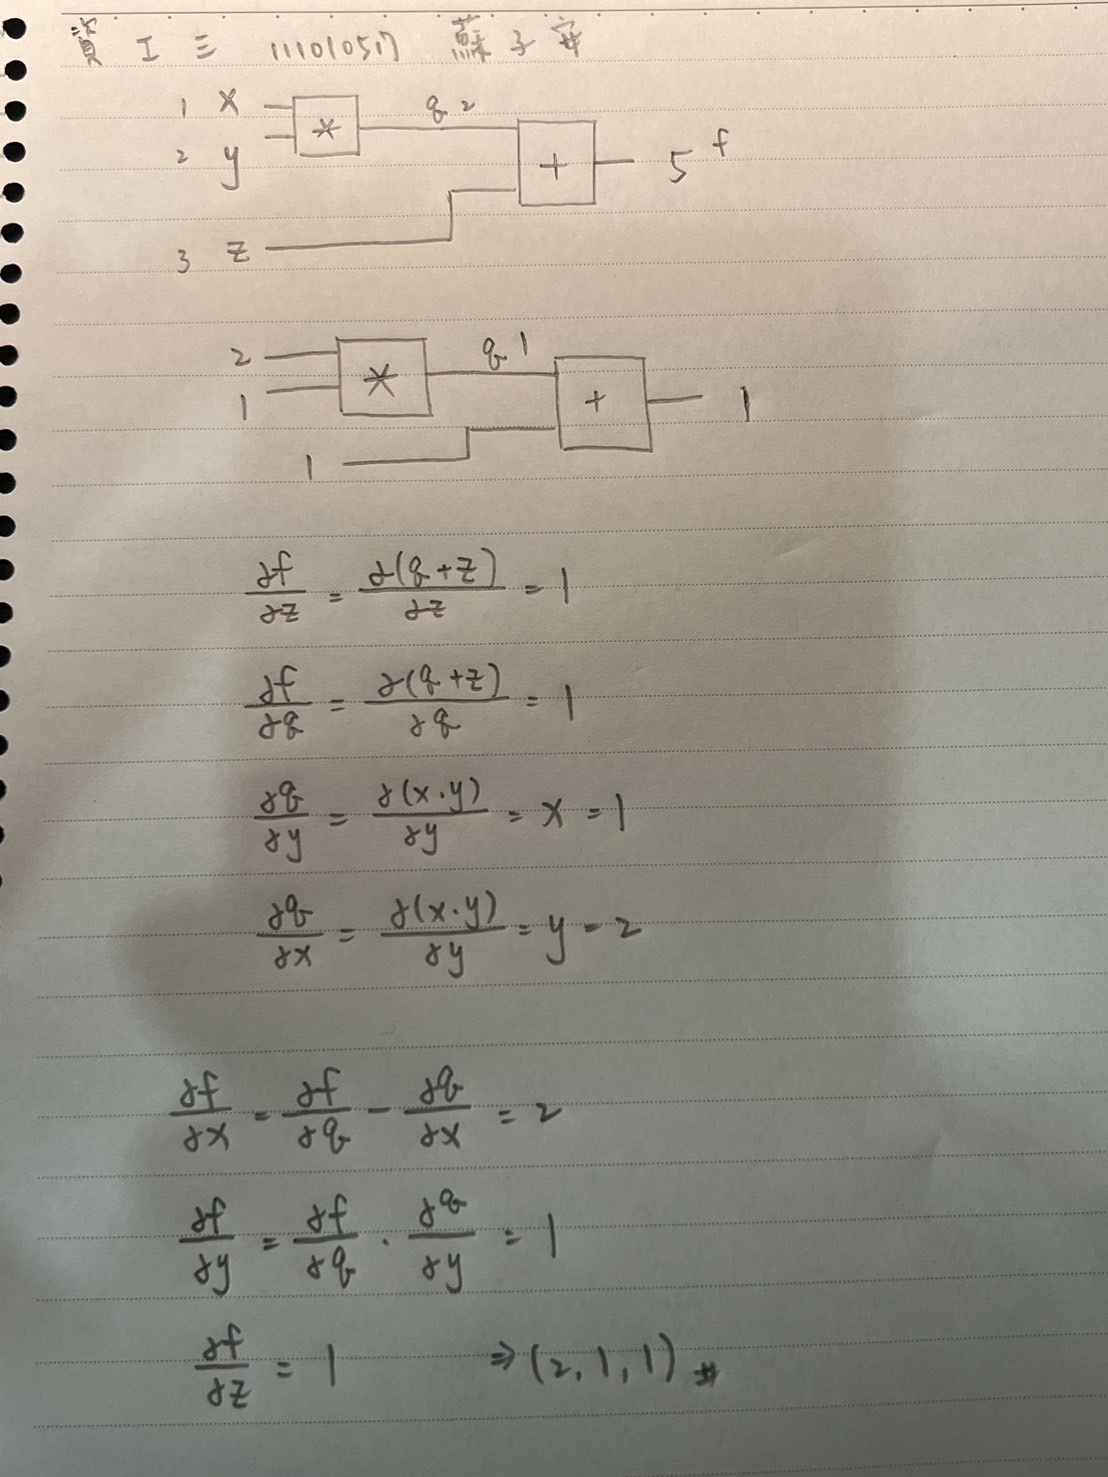 資工三 111010517 蘇子安
1 x * q 2
2 y + 5 f
3 z
2 * q 1
1 + 1
1
∂f/∂z = ∂(q+z)/∂z = 1
∂f/∂q = ∂(q+z)/∂q = 1
∂q/∂y = ∂(x·y)/∂y = x = 1
∂q/∂x = ∂(x·y)/∂y = y = 2
∂f/∂x = ∂f/∂q - ∂q/∂x = 2
∂f/∂y = ∂f/∂q · ∂q/∂y = 1
∂f/∂z = 1 ⇒ (2, 1, 1) #